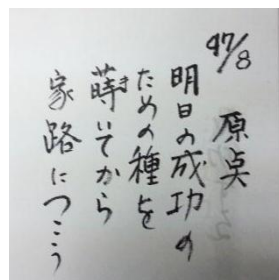 97/8
原点
明日の成功の
ための種を
蒔いてから
家路につこう